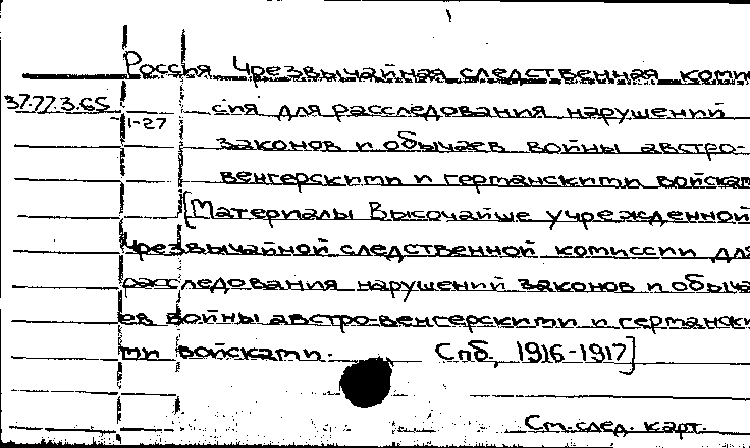 Россия Чрезвычайная следственная коми
37.77.3.65 сия для расследования нарушений
1-27
законов и обычаев войны австро-
венгерскими и германскими войскам
[Материалы Высочайше учрежденной
Чрезвычайной следственной комиссии для
расследования нарушений законов и обыча
ев войны австро-венгерскими и германск
ми войсками. Спб, 1916-1917]
См. след. карт.